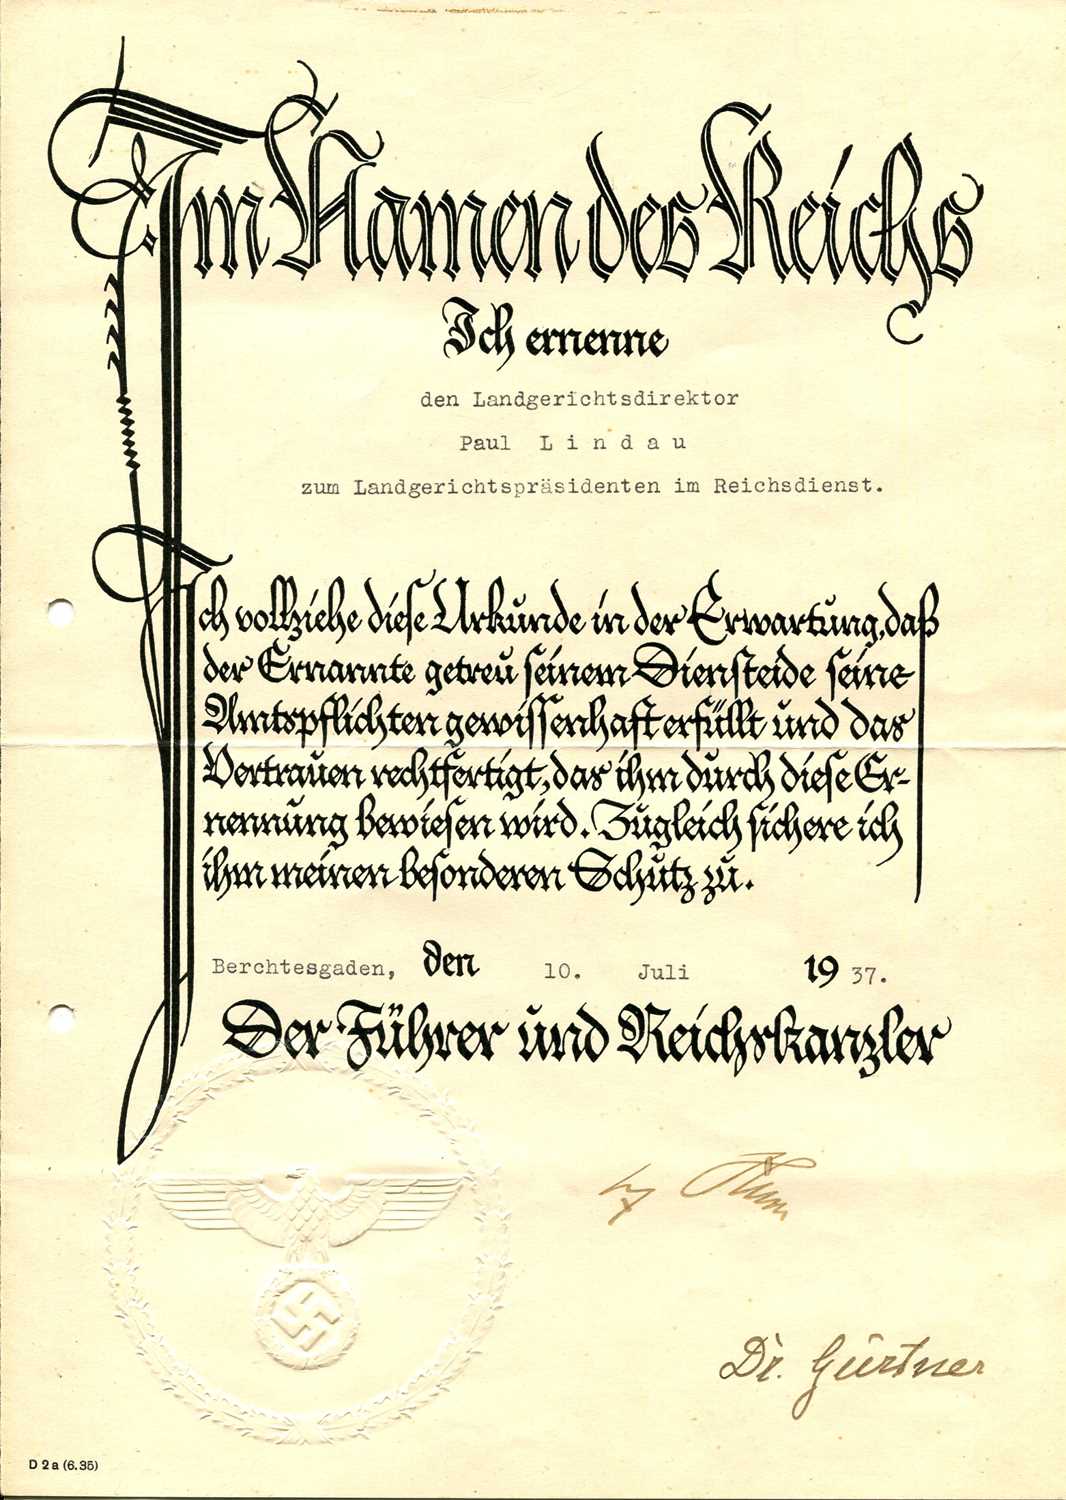 Im Namen des Reichs
Ich ernenne
den Landgerichtsdirektor
Paul L i n d a u
zum Landgerichtspräsidenten im Reichsdienst.
Ich vollziehe diese Urkunde in der Erwartung, daß
der Ernannte getreu seinem Diensteide seine
Amtspflichten gewissenhaft erfüllt und das
Vertrauen rechtfertigt, das ihm durch diese Er-
nennung bewiesen wird. Zugleich sichere ich
ihm meinen besonderen Schutz zu.
Berchtesgaden, den 10. Juli 1937.
Der Führer und Reichskanzler
Dr. Gürtner
D 2 a (6.35)